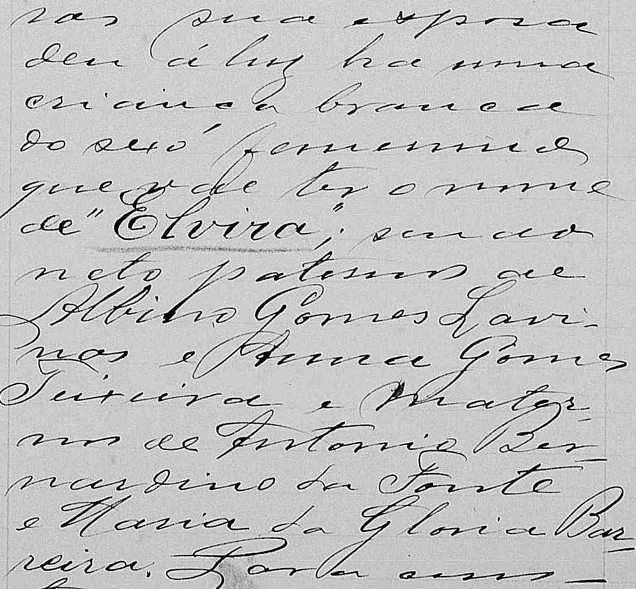 ras sua esposa
deu á luz ha uma
criança branca
do sexo femenino
que vae ter o nome
de "Elvira", sendo
neto paterno de
Albino Gomes Lavi-
nas e Anna Gomes
Teixeira e mater-
no de Antonio Ber-
nardino da Fonte
e Maria da Gloria Bar-
reira. Para cons-